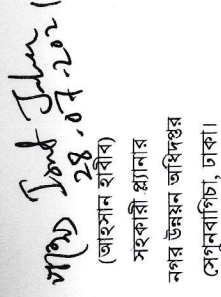 28.07.2021
(আহসান হাবীব)
সহকারী প্ল্যানার
নগর উন্নয়ন অধিদপ্তর
সেগুনবাগিচা, ঢাকা।